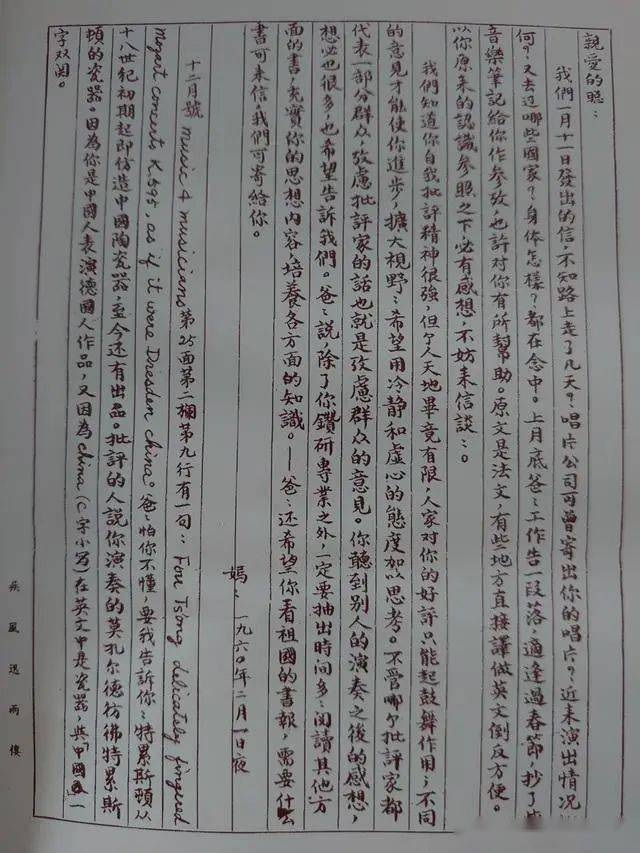 親愛的聰：
我們一月十一日發出的信，不知路上走了几天？唱片公司可曾寄出你的唱片？近来演出情況如
何？又去过哪些國家？身体怎樣？都在念中。上月底爸爸工作告一段落，適逢過春節，抄了些
音樂筆記給你作參攷，也許对你有所幫助。原文是法文，有些地方直接譯做英文倒反方便。
以你原来的認識參照之下必有感想，不妨来信談談。
我們知道你自我批評精神很強，但个人天地畢竟有限，人家对你的好評只能起鼓舞作用；不同
的意見才能使你進步，擴大視野：希望用冷静和虛心的態度加以思考。不管哪个批評家都
代表一部分群众，攷慮批評家的話也就是攷慮群众的意見。你聽到別人的演奏之後的感想，
想必也很多，也希望告訴我們。爸爸說，除了你鑽研專業之外，一定要抽出时间多多閱讀其他方
面的書，充實你的思想內容，培養各方面的知識。——爸爸还希望你看祖國的書報，需要什么
書可来信，我們可寄給你。
媽媽 一九六〇年二月一日夜
十二月號 music & musicians 第25面第二欄第九行有一句：Fou Ts'ong delicately fingered
Mozart concerto K.595, as if it were Dresden china。爸爸怕你不懂，要我告訴你：特累斯頓从
十八世紀初期起即仿造中國陶瓷器，至今还有出品。批評的人說你演奏的莫扎尔德彷彿特累斯
頓的瓷器。因為你是中國人表演德國人作品，又因為china（C字小写）在英文中是瓷器，與「中國」一
字双関。
疾風迅雨樓